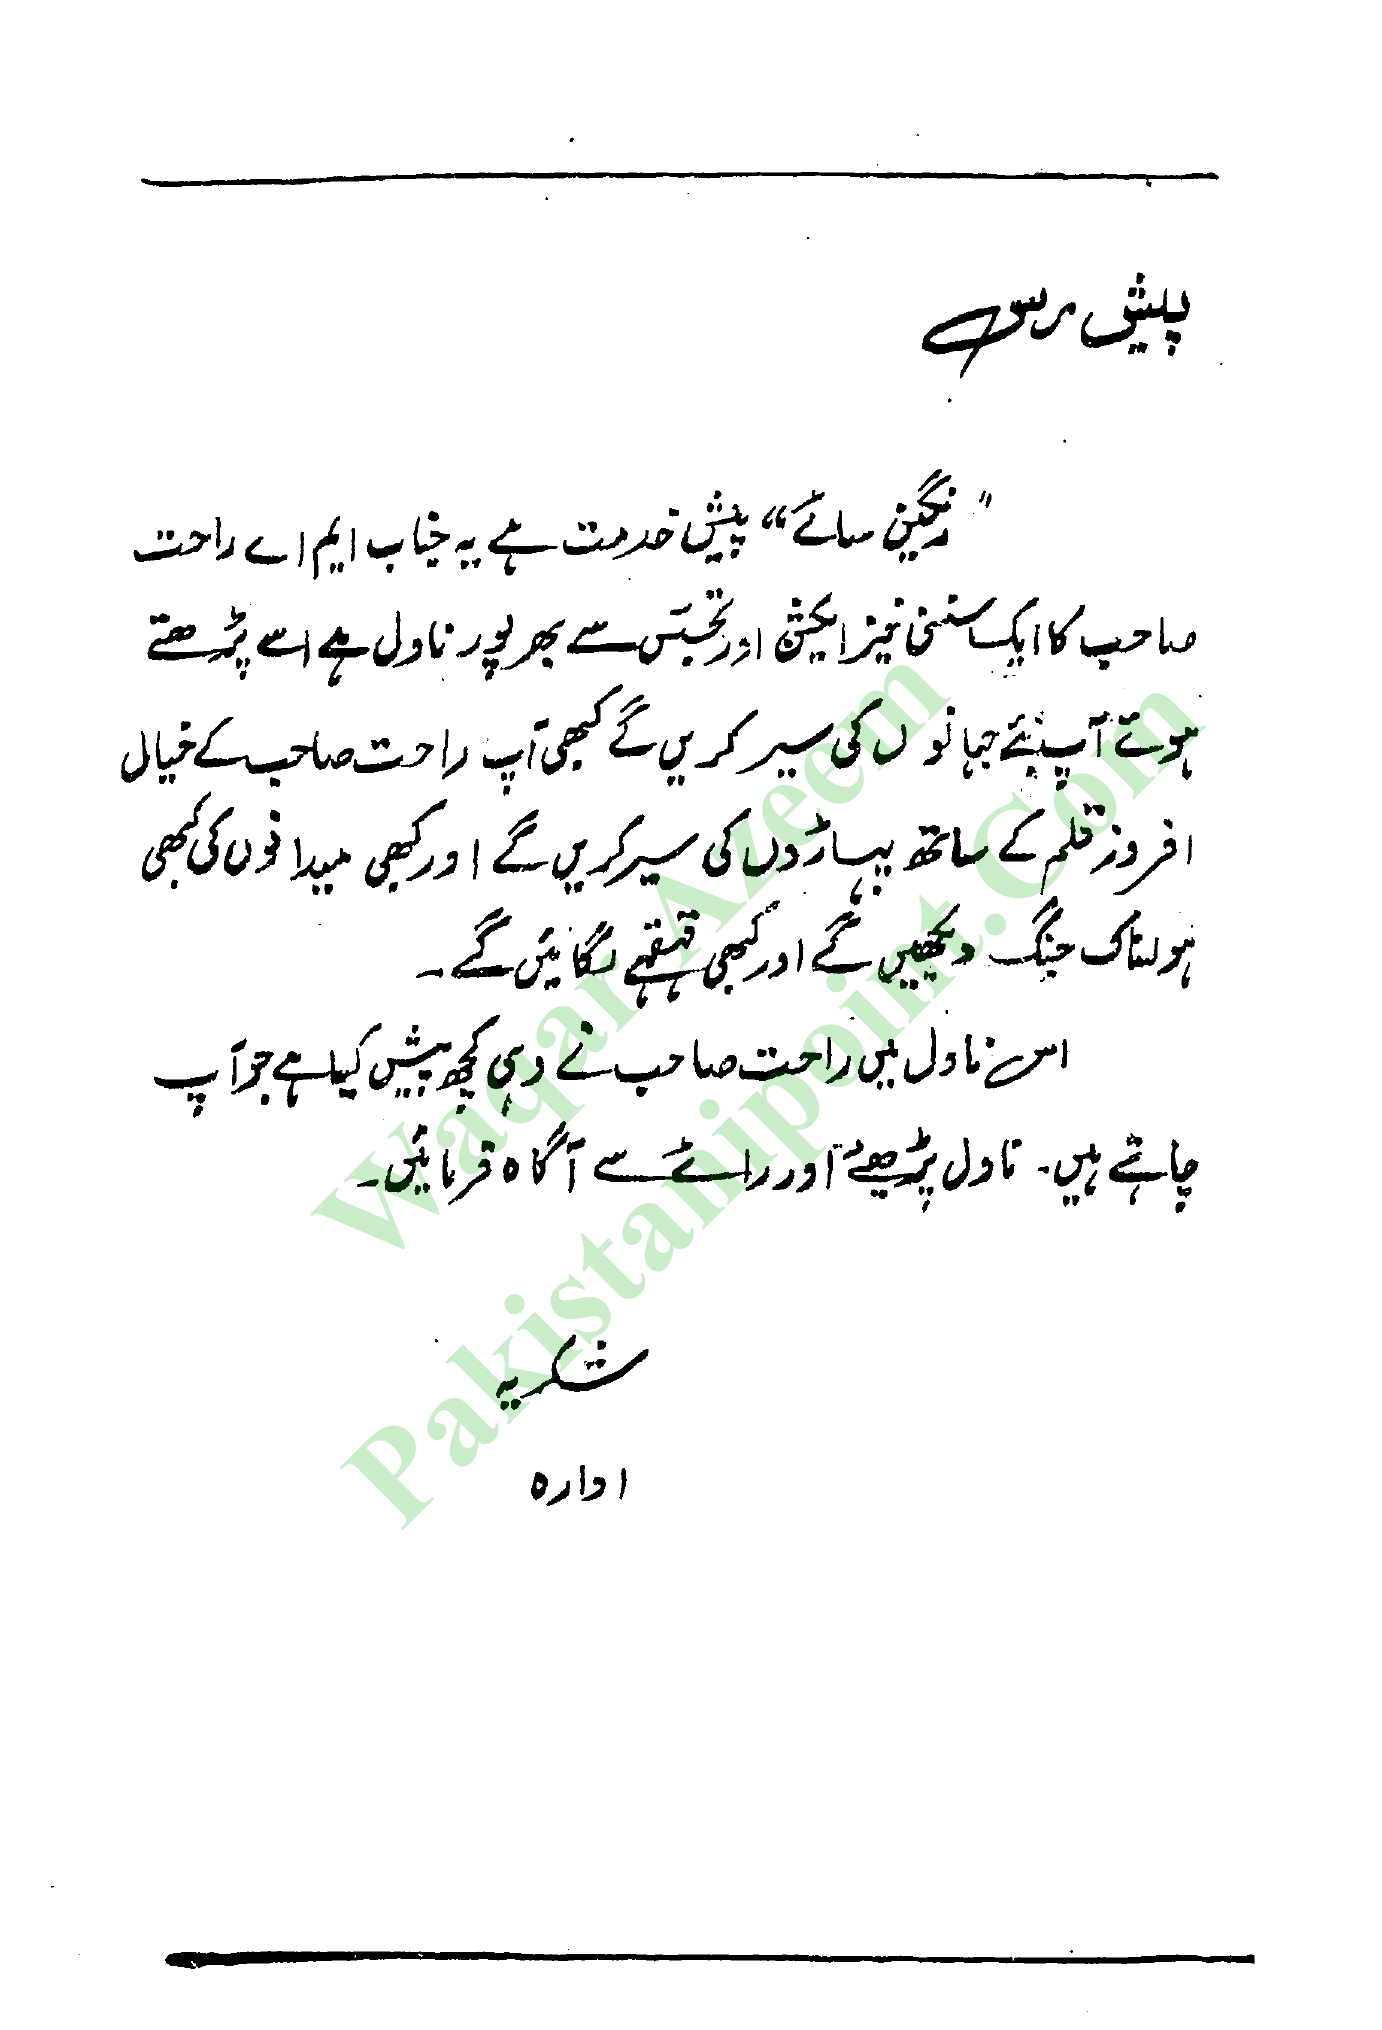 پیش رس
"رنگین سائے" پیش خدمت ہے یہ جناب ایم اے راحت
صاحب کا ایک سنسنی خیز ایکشن اور تجسّس سے بھر پور ناول ہے اسے پڑھتے
ہوتے آپ نئے جہانوں کی سیر کریں گے کبھی آپ راحت صاحب کے خیال
افروز قلم کے ساتھ پہاڑوں کی سیر کریں گے اور کبھی میدانوں کی کبھی
ہولناک جنگ دیکھیں گے اور کبھی قہقہے لگائیں گے۔
اس ناول میں راحت صاحب نے وہی کچھ پیش کیا ہے جو آپ
چاہتے ہیں۔ ناول پڑھئے اور رائے سے آگاہ فرمائیں۔
شکریہ
ادارہ
Waqar Azeem
Pakistanipoint.Com